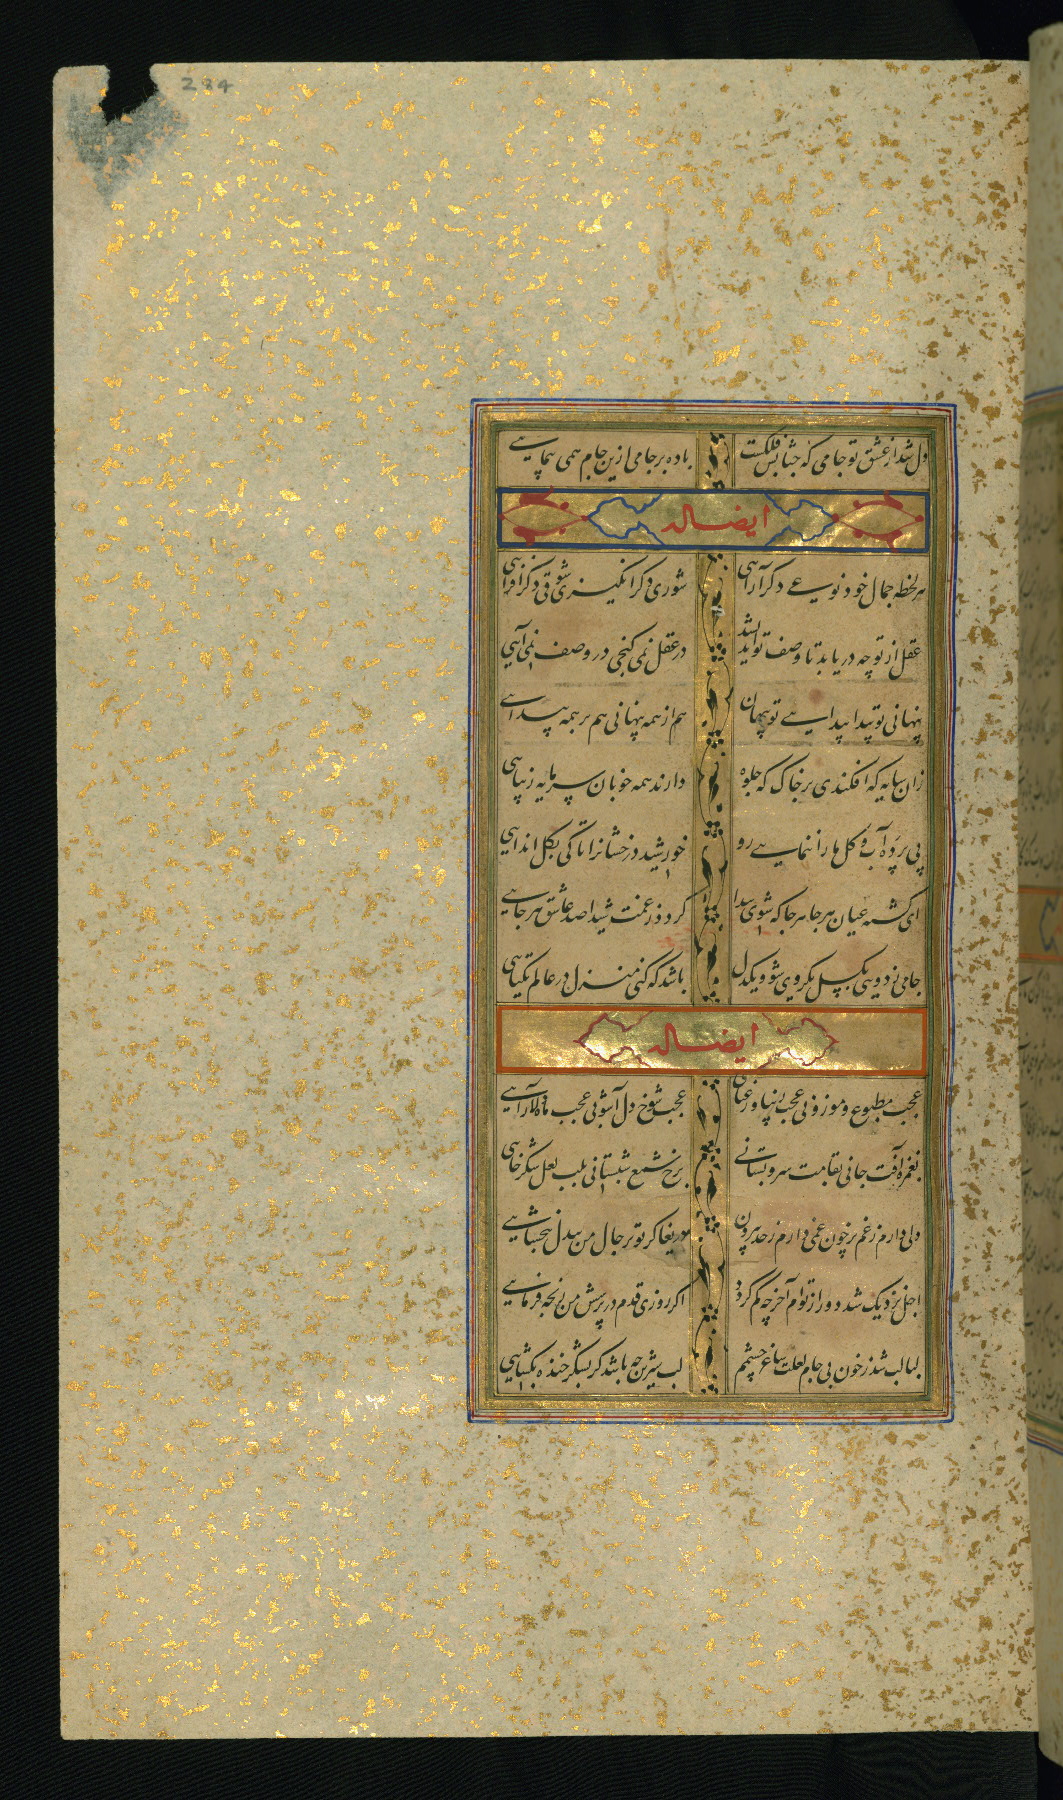 234
دل شد از عشق تو جامی که حبابش فلکست باده بر جامی ازین جام همی پیمایی
ایضا له
هر لحظه جمال خود نوعی دکر آرایی شوری دکر انکیزی شوقی دکر افزایی
عقل از تو چه دریابد تا وصف تو اندیشد در عقل نمی کنجی در وصف نمی آیی
پنهانی تو پیدا پیدایی تو پنهان هم از همه پنهانی هم بر همه پیدایی
زان سایه که افکندی بر خاک که جلوه دارند همه خوبان سرمایه زیبایی
بی پرده آب و کل ما را ننمایی رو خورشید درخشانرا تا کی بکل اندایی
ای کشته عیان هر جا هر جا که شوی پیدا کردد ز غمت شیدا صد عاشق هر جایی
جامی ز دویی بکسل یکروی شو و یکدل باشد که کنی منزل در عالم یکتایی
ایضا له
عجب مطبوع و موزونی عجب زیبا و رعنایی عجب شوخ دل آشوبی عجب ماه دلارایی
بغمزه آفت جانی بقامت سرو بستانی برخ شمع شبستانی بلب لعل شکرخایی
دلی دارم ز غم پرخون غمی دارم ز حد بیرون دریغا کر تو بر حال من بیدل نبخشایی
اجل نزدیک شد دور از توام آخر چه کم کردد اکر روزی قدم در پرسش من رنجه فرمایی
لبالب شد ز خون بی جام لعلت ساغر چشمم لب شیرین چه باشد کر بشکر خنده بکشایی